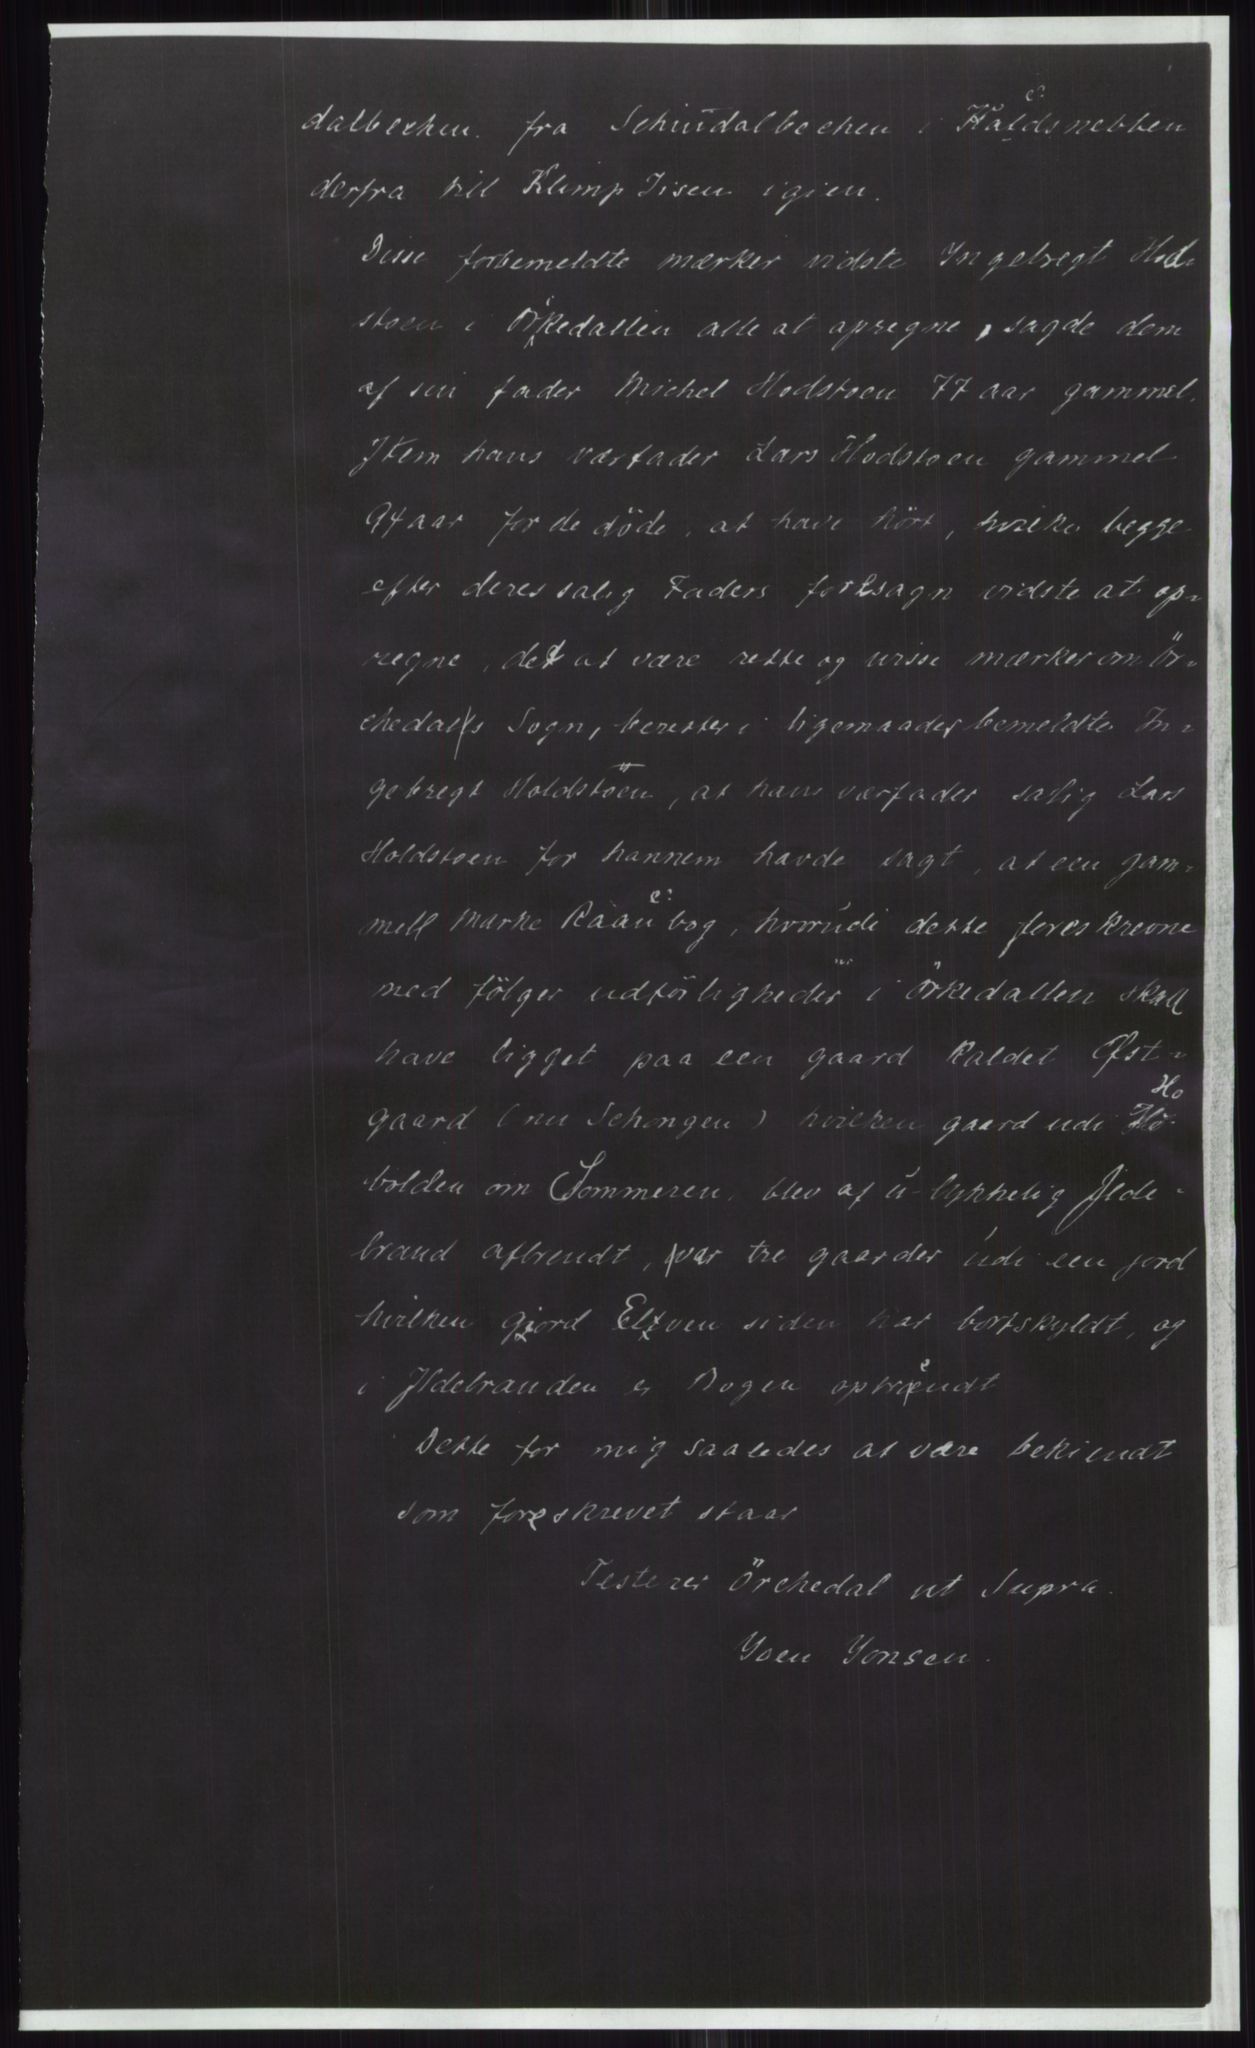 dalbechen. fra Schiûdalbechen i Håldsnebben
derfra til Klimp Iisen igien.
Disse forbemeldte mærker vidste Yngebregt Hod-
stoen i Örkedallen alle at opregne, sagde dem
af sin fader Michel Hodstoen 77 aar gammel.
Item hans værfader Lars Hodstoen gammel
94 aar for de döde, at have hört, hvilke begge
efter deres salig Faders foresagn vidste at op-
regne, det at være rette og visse mærker om Ör-
chedals Sogn, beretter i ligemaader bemeldte In-
gebregt Holdstöen, at hans værfader salig Lars
Holdstoen for hannem havde sagt, at een gam-
mell Marke Råaû bog, hvorudi dette foreskrevne
med fölger udförligheder i Örkedallen skall
have ligget paa een gaard kaldet Øst-
gaard (nu Schongen) hvilken gaard udi Hö Ho
bolden om Sommeren, blev af û-lykkelig Ilde-
brand afbrendt, var tre gaarder udi een jord
hvilken gjord Elfven siden har bortskyldt, og
i Ildebranden er Bogen opbrændt
Dette for mig saaledes at være bekiendt
som foreskrevet staar
Testerer Örchedal ut Supra.
Yoen Yonsen.